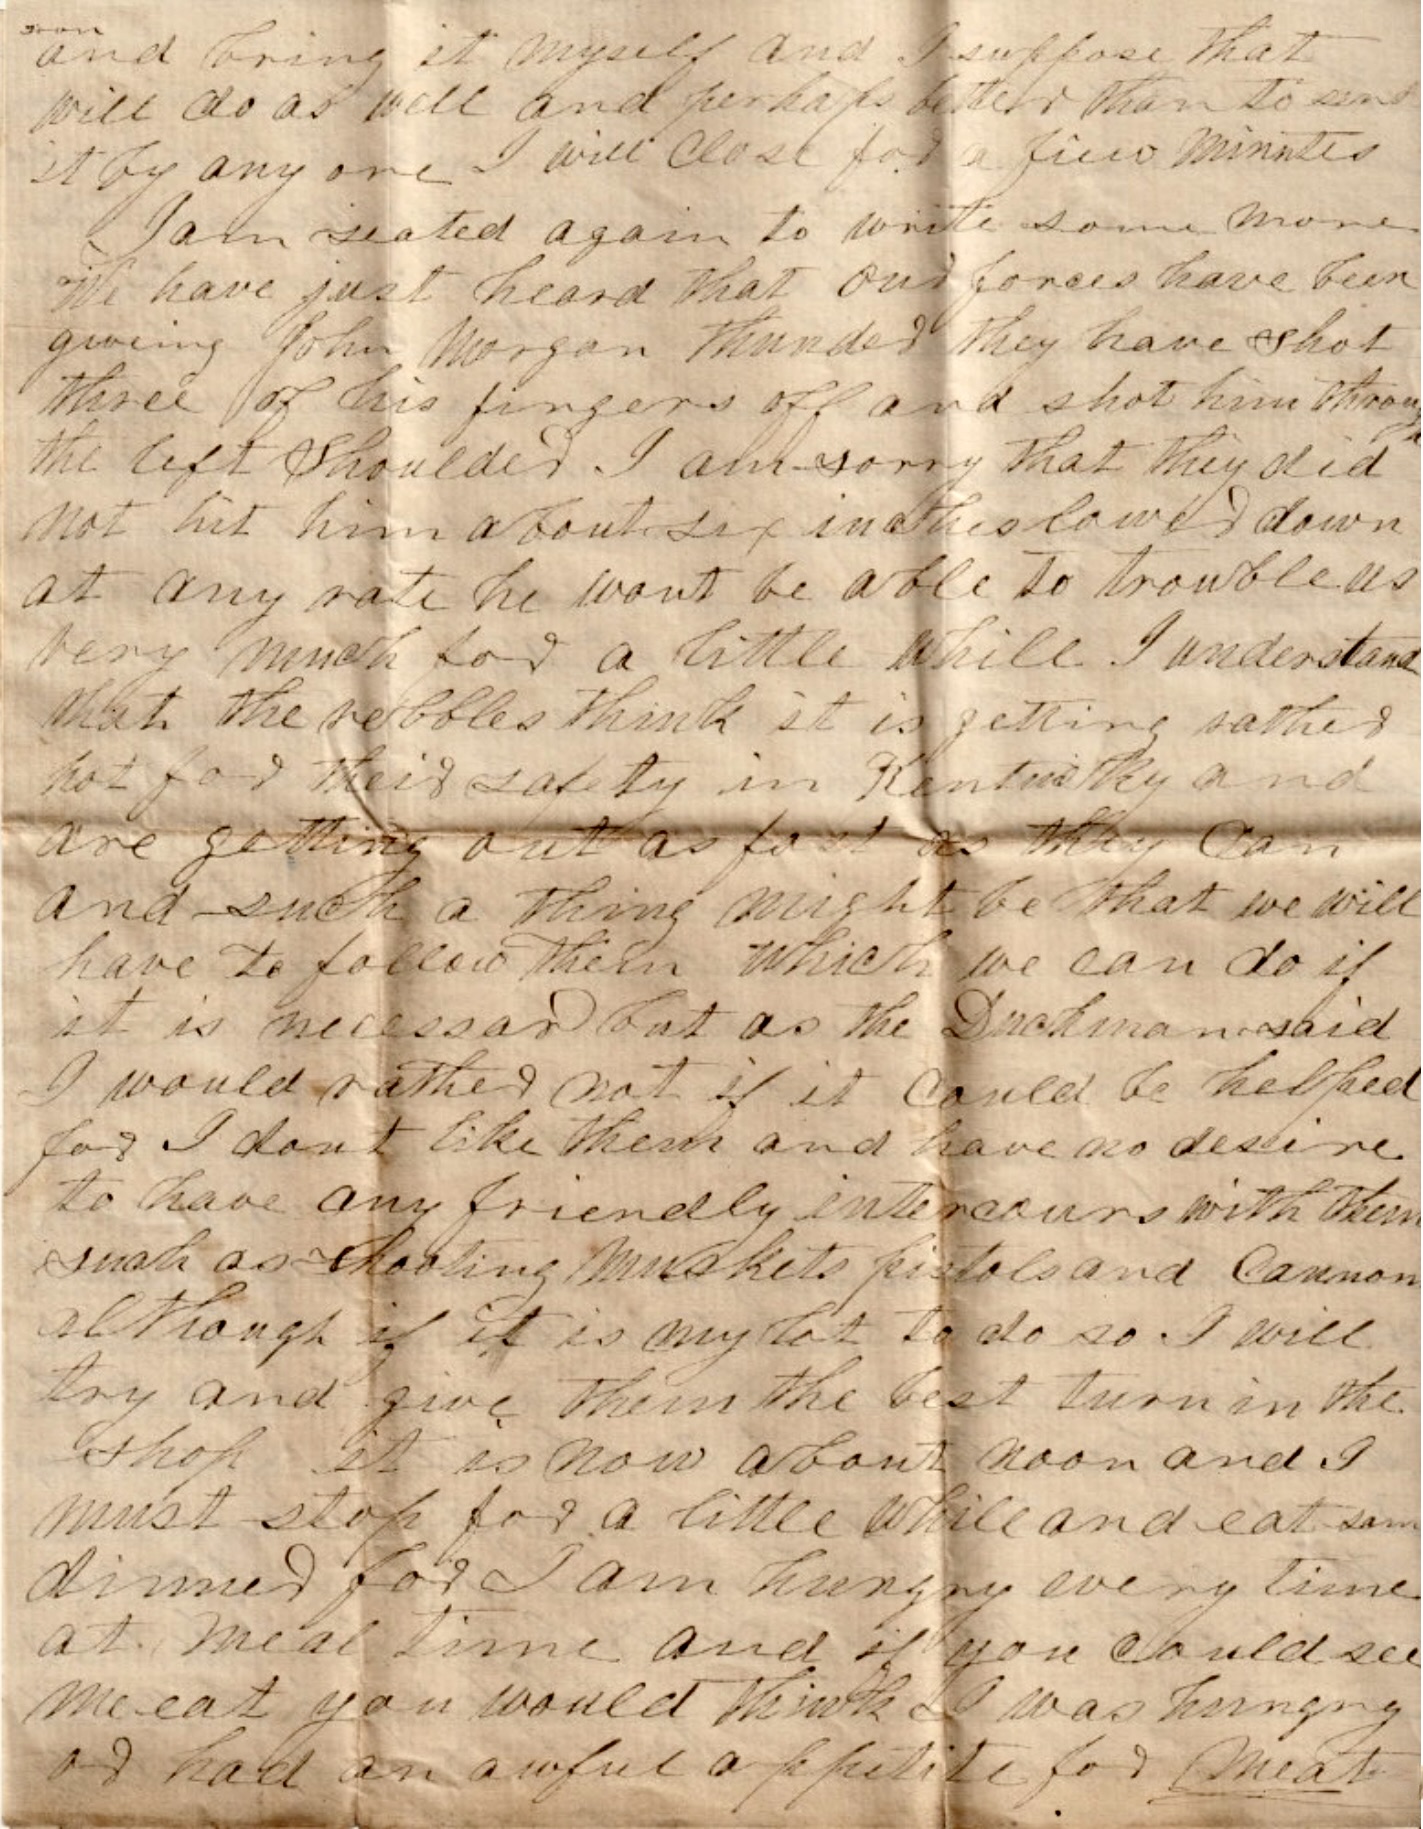 soon
and bring it myself and I suppose that
will do as well and perhaps better than to send
it by any one I will close for a fiew minutes
I am seated again to write some more
We have just heard that our forces have been
giveing John Morgan thunder they have shot
three of his fingers off and shot him through
the left shoulder I am sorry that they did
not hit him about six inches lower down
at any rate he wont be able to trouble us
very much for a little while I understand
that the rebbles think it is getting rather
hot for their safety in Kentuctky and
are getting out as fast as they can
and such a thing might be that we will
have to follow them which we can do if
it is necessar but as the Duchman said
I would rather not if it could be helped
for I dont like them and have no desire
to have any friendly intercours with them
such as shooting muskets pistols and Cannon
although if it is my lot to do so I will
try and give them the best turn in the
shop it is now about noon and I
must stop for a little while and eat som
dinner for I am hungry every time
at meal time and if you could see
me eat you would think I was hungry
or had an awful appetite for Meat